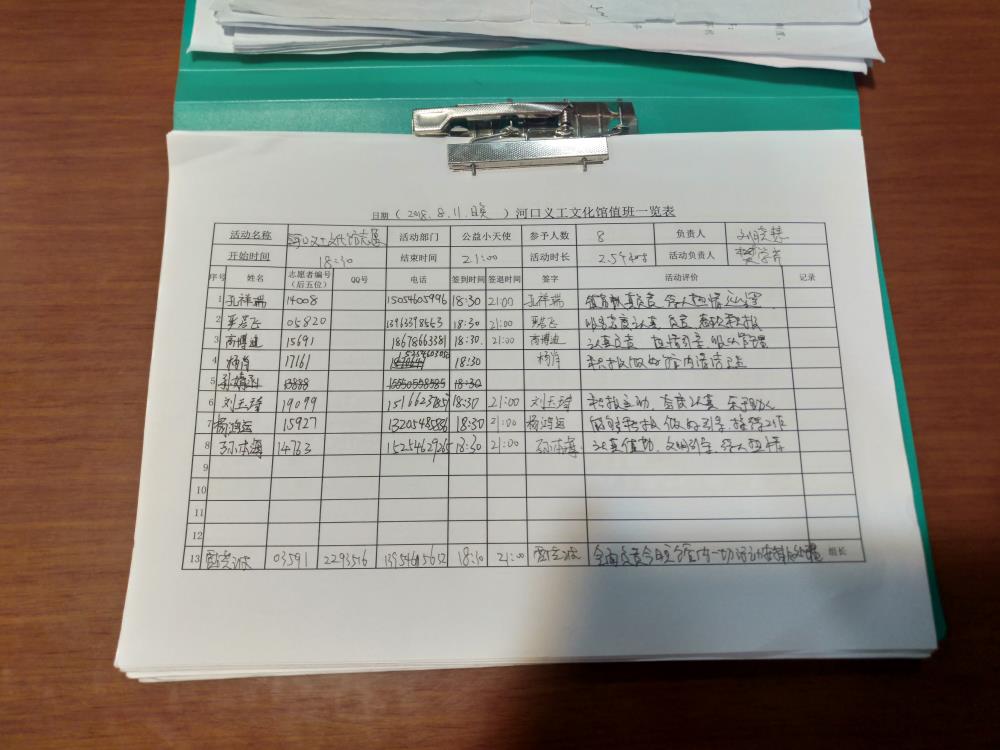 日期（2018.8.11.晚）河口义工文化馆值班一览表
活动名称 河口义工文化馆志愿 活动部门 公益小天使 参予人数 8 负责人 刘晓慧
开始时间 18:30 结束时间 21:00 活动时长 2.5小时 活动负责人
序号 姓名 志愿者编号（后五位） QQ号 电话 签到时间 签退时间 签字 活动评价 记录
1 孔祥瑞 14008 15054605996 18:30 21:00 孔祥瑞
2 05820 13963398553 18:30 21:00 服务态度认真，负责，表现积极
3 商博迪 15691 18678663381 18:30. 21:00 商博迪 认真负责 服从管理
4 杨肖 17161 18:30 杨肖 积极做好馆内清洁
5 13888 15550558585 18:30
6 刘玉璋 19099 18:30 21:00 刘玉璋 积极主动，认真 乐于助人
7 杨鸿运 15927 13205485836 18:30 21:00 杨鸿运
8 孙本海 14763 15254629265 18:30 21:00 孙本海 认真值勤，文明引导，待人热情
9
10
11
12
13 03591 2293516 13954615652 18:30 21:00 组长